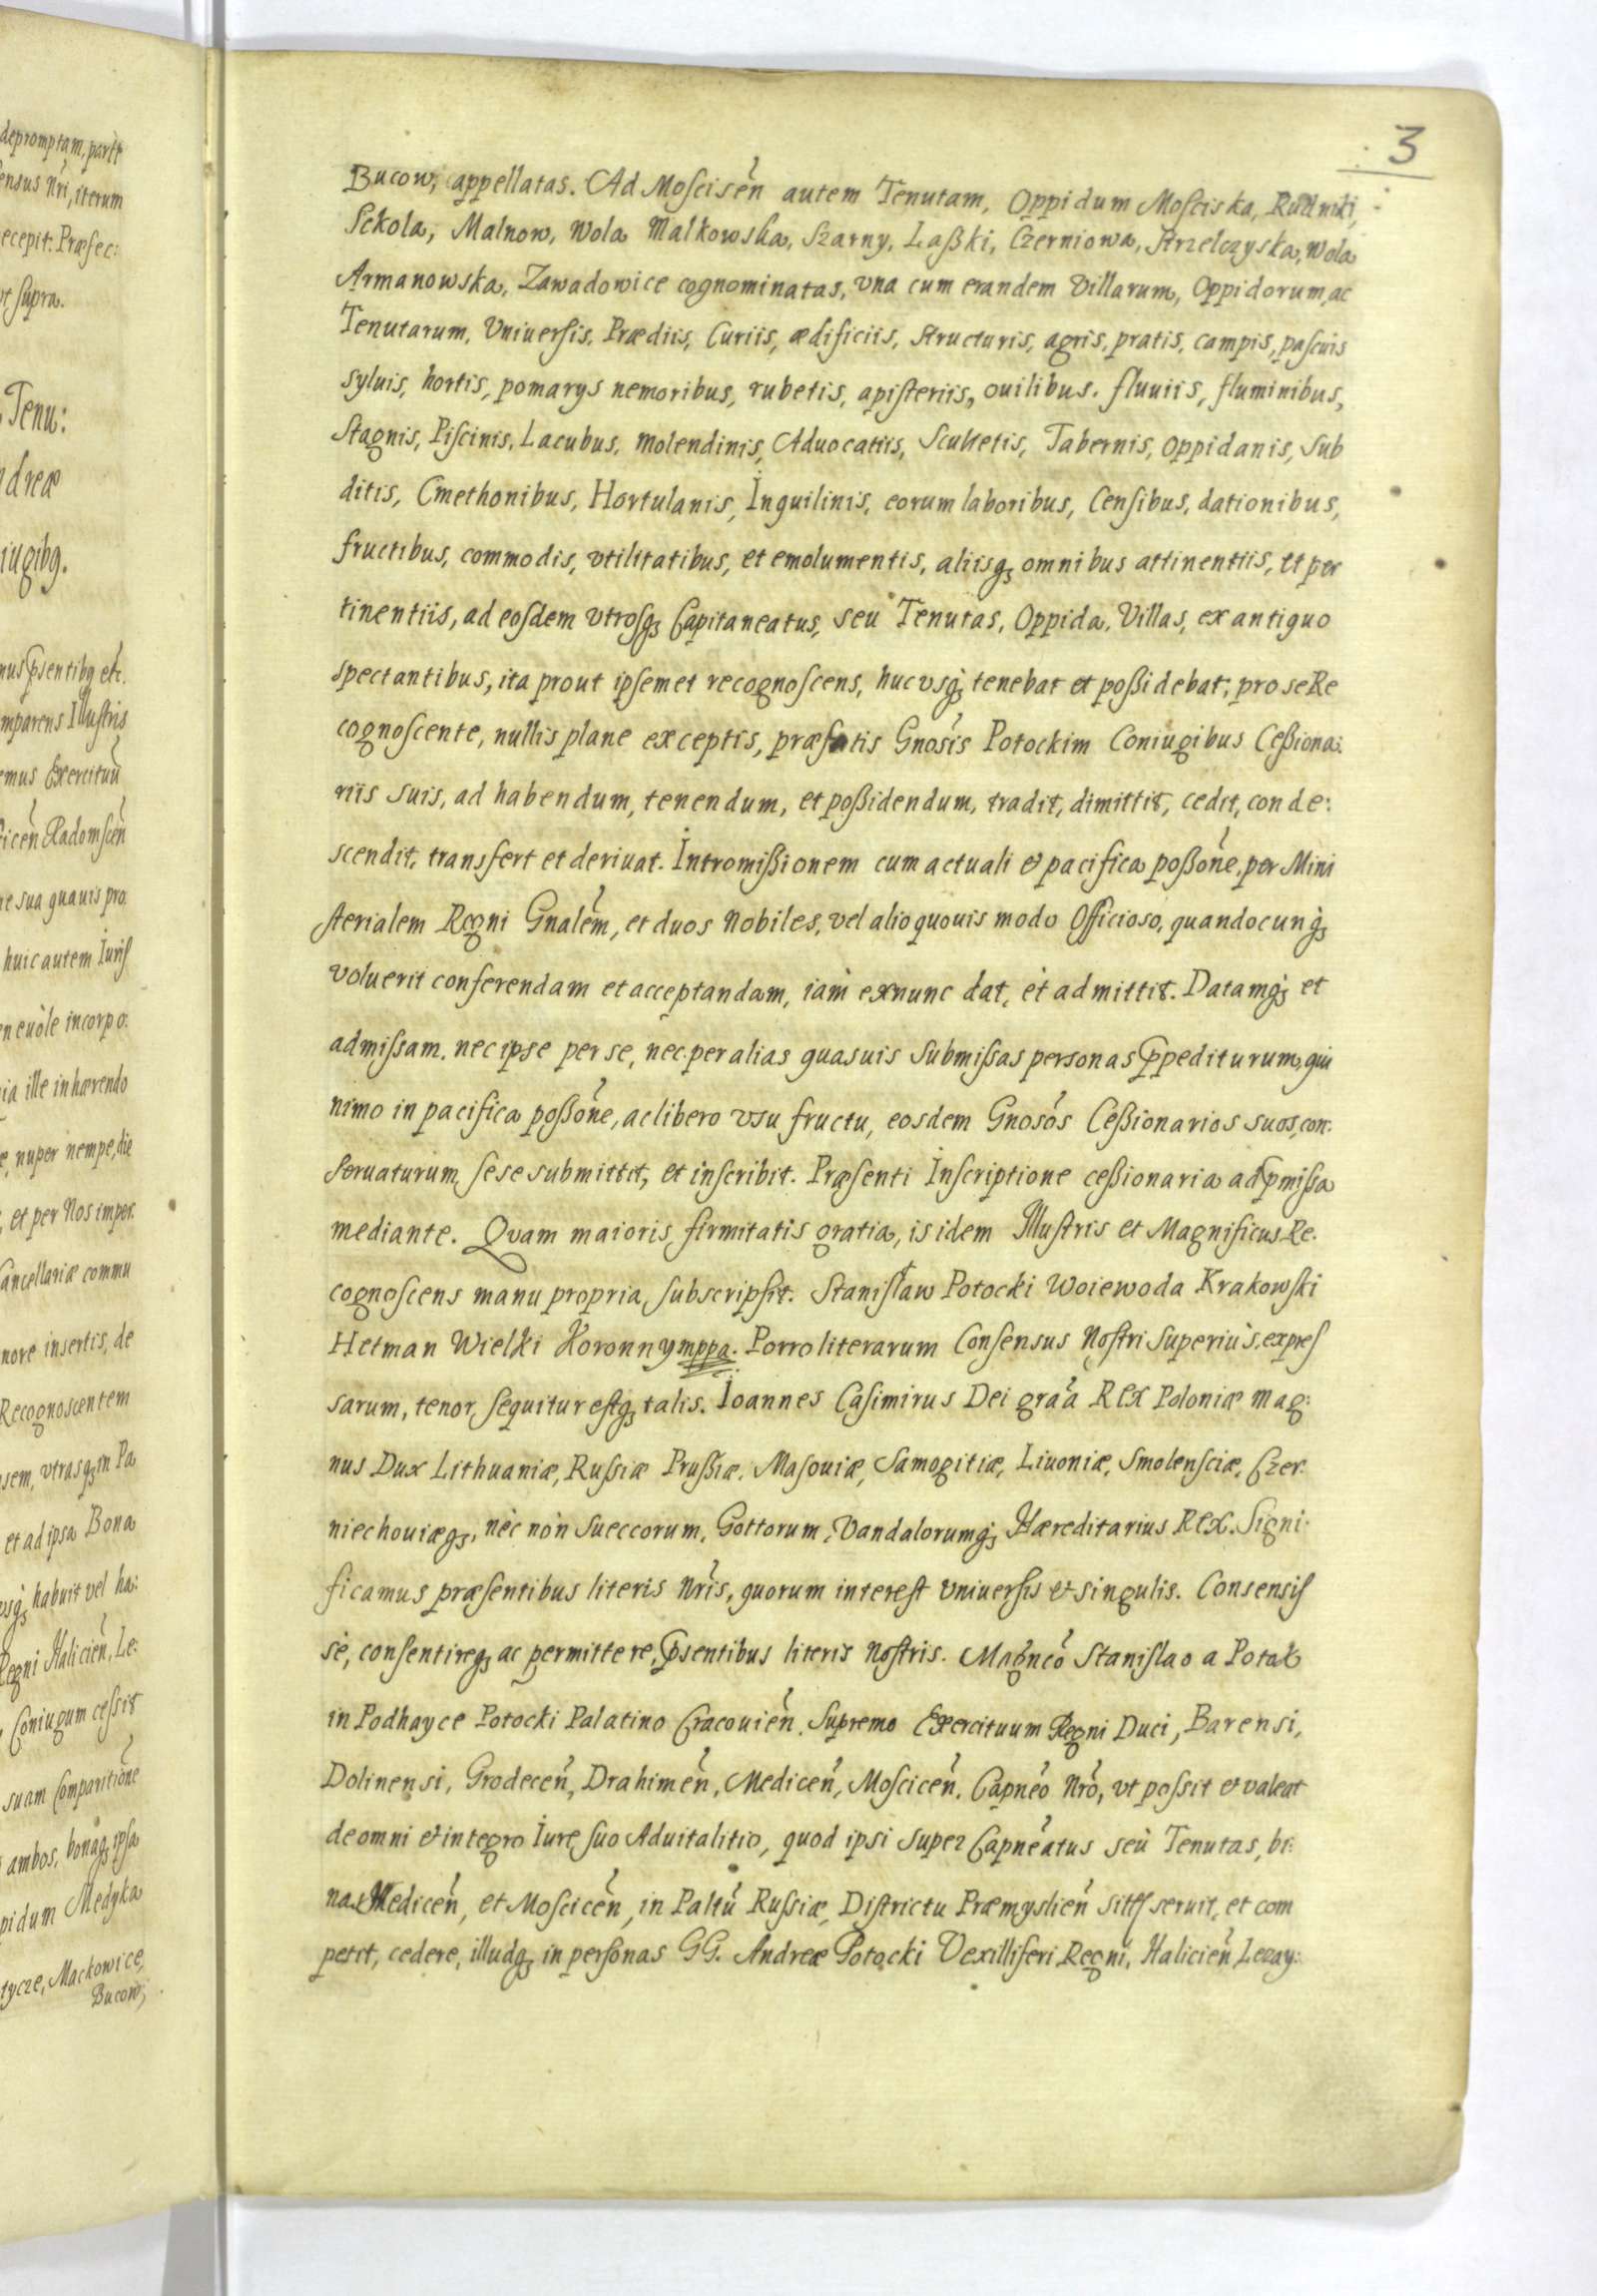 3
Bucow, appellatas. Ad Moscisen̄ autem Tenutam, Oppidum Mosciska, Rudniki,
Sckola, Malnow, Wola Malkowska, Szarny, Laßki, Czerniowa, Strzelczyska, Wola
Armanowska, Zawadowice cognominatas, vna cum erandem Villarum, Oppidorum, ac
Tenutarum, Vniuersis, Prædiis, Curiis, ædificiis, structuris, agris, pratis, campis, pascuis
syluis, hortis, pomarys nemoribus, rubetis, apisteriis, ouilibus. fluuiis, fluminibus,
Stagnis, Piscinis, Lacubus, molendinis, Aduocatiis, Scultetis, Tabernis, oppidanis, Sub
ditis, Cmethonibus, Hortulanis, Inquilinis, eorum laboribus, Censibus, dationibus,
fructibus, commodis, vtilitatibus, et emolumentis, aliisq; omnibus attinentiis, et per
tinentiis, ad eosdem vtrosq; Capitaneatus, seu Tenutas, Oppida, Villas, ex antiquo
spectantibus, ita prout ipsemet recognoscens, hucvsq; tenebat et poßidebat, pro se Re
cognoscente, nullis plane exceptis, præfatis Gnosis Potockim Coniugibus Ceßiona:
riis suis, ad habendum, tenendum, et poßidendum, tradit, dimittit, cedit, conde:
scendit, transfert et deriuat. Intromißionem cum actuali & pacifica poßone, per Mini
sterialem Regni Gnalem, et duos Nobiles, vel alio quouis modo Officioso, quandocunq;
voluerit conferendam et acceptandam, iam exnunc dat, et admittit. Datamq; et
admissam, nec ipse per se, nec per alias quasuis submissas personas ꝓpediturum, qui
nimo in pacifica poßone, ac libero vsu fructu, eosdem Gnosos Ceßionarios suos, con:
seruaturum, sese submittit, et inscribit. Præsenti Inscriptione ceßionaria ad ꝓmissa
mediante. Quam maioris firmitatis gratia, is idem Illustris et Magnificus Re:
cognoscens manu propria subscripsit. Stanisław Potocki Woiewoda Krakowski
Hetman Wielki Koronny mppa. Porro literarum Consensus Nostri superius, expres
sarum, tenor sequitur estq; talis. Ioannes Casimirus Dei graa Rex Poloniæ mag:
nus Dux Lithuaniæ, Russiæ Prußiæ, Masouiæ, Samogitiæ, Liuoniæ, Smolensciæ, Czer:
niechouiæq;, nèc nòn Sueccorum, Gottorum, Vandalorumq; Hæreditarius Rex. Signi:
ficamus præsentibus literis Nris, quorum interest vniuersis et singulis. Consensis
sè, consentireq; ac permittere, ꝓsentibus literis nostris. Magnco Stanislao a Potok
in Podhayce Potocki Palatino Cracouien, Supremo Exercituum Regni Duci, Barensi,
Dolinensi, Grodecen, Drahimen, Medicen, Moscicen, Capneo Nro, vt possit et valeat
de omni et integro Iure suo Aduitalitio, quod ipsi super Capneatus seù Tenutas, bi:
nas Medicen, et Moscicen, in Paltu Russiæ, Districtu Præmyslien sittes seruit, et com
petit, cedere, illudq; in personas GG. Andreæ Potocki Vexilliferi Regni, Halicien Lezay: